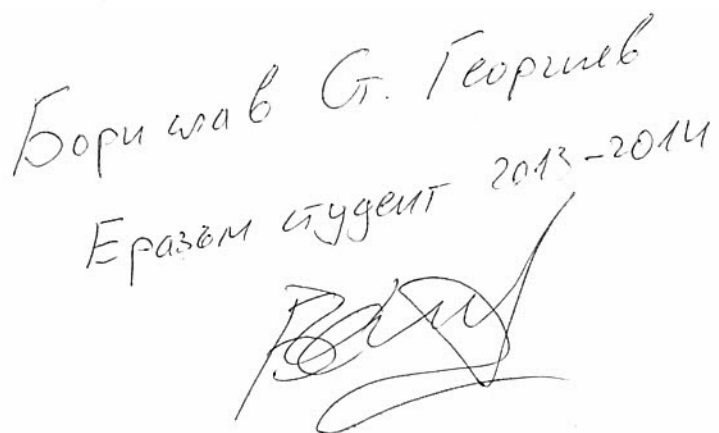 Борислав Ст. Георгиев
Еразъм студент 2013-2014